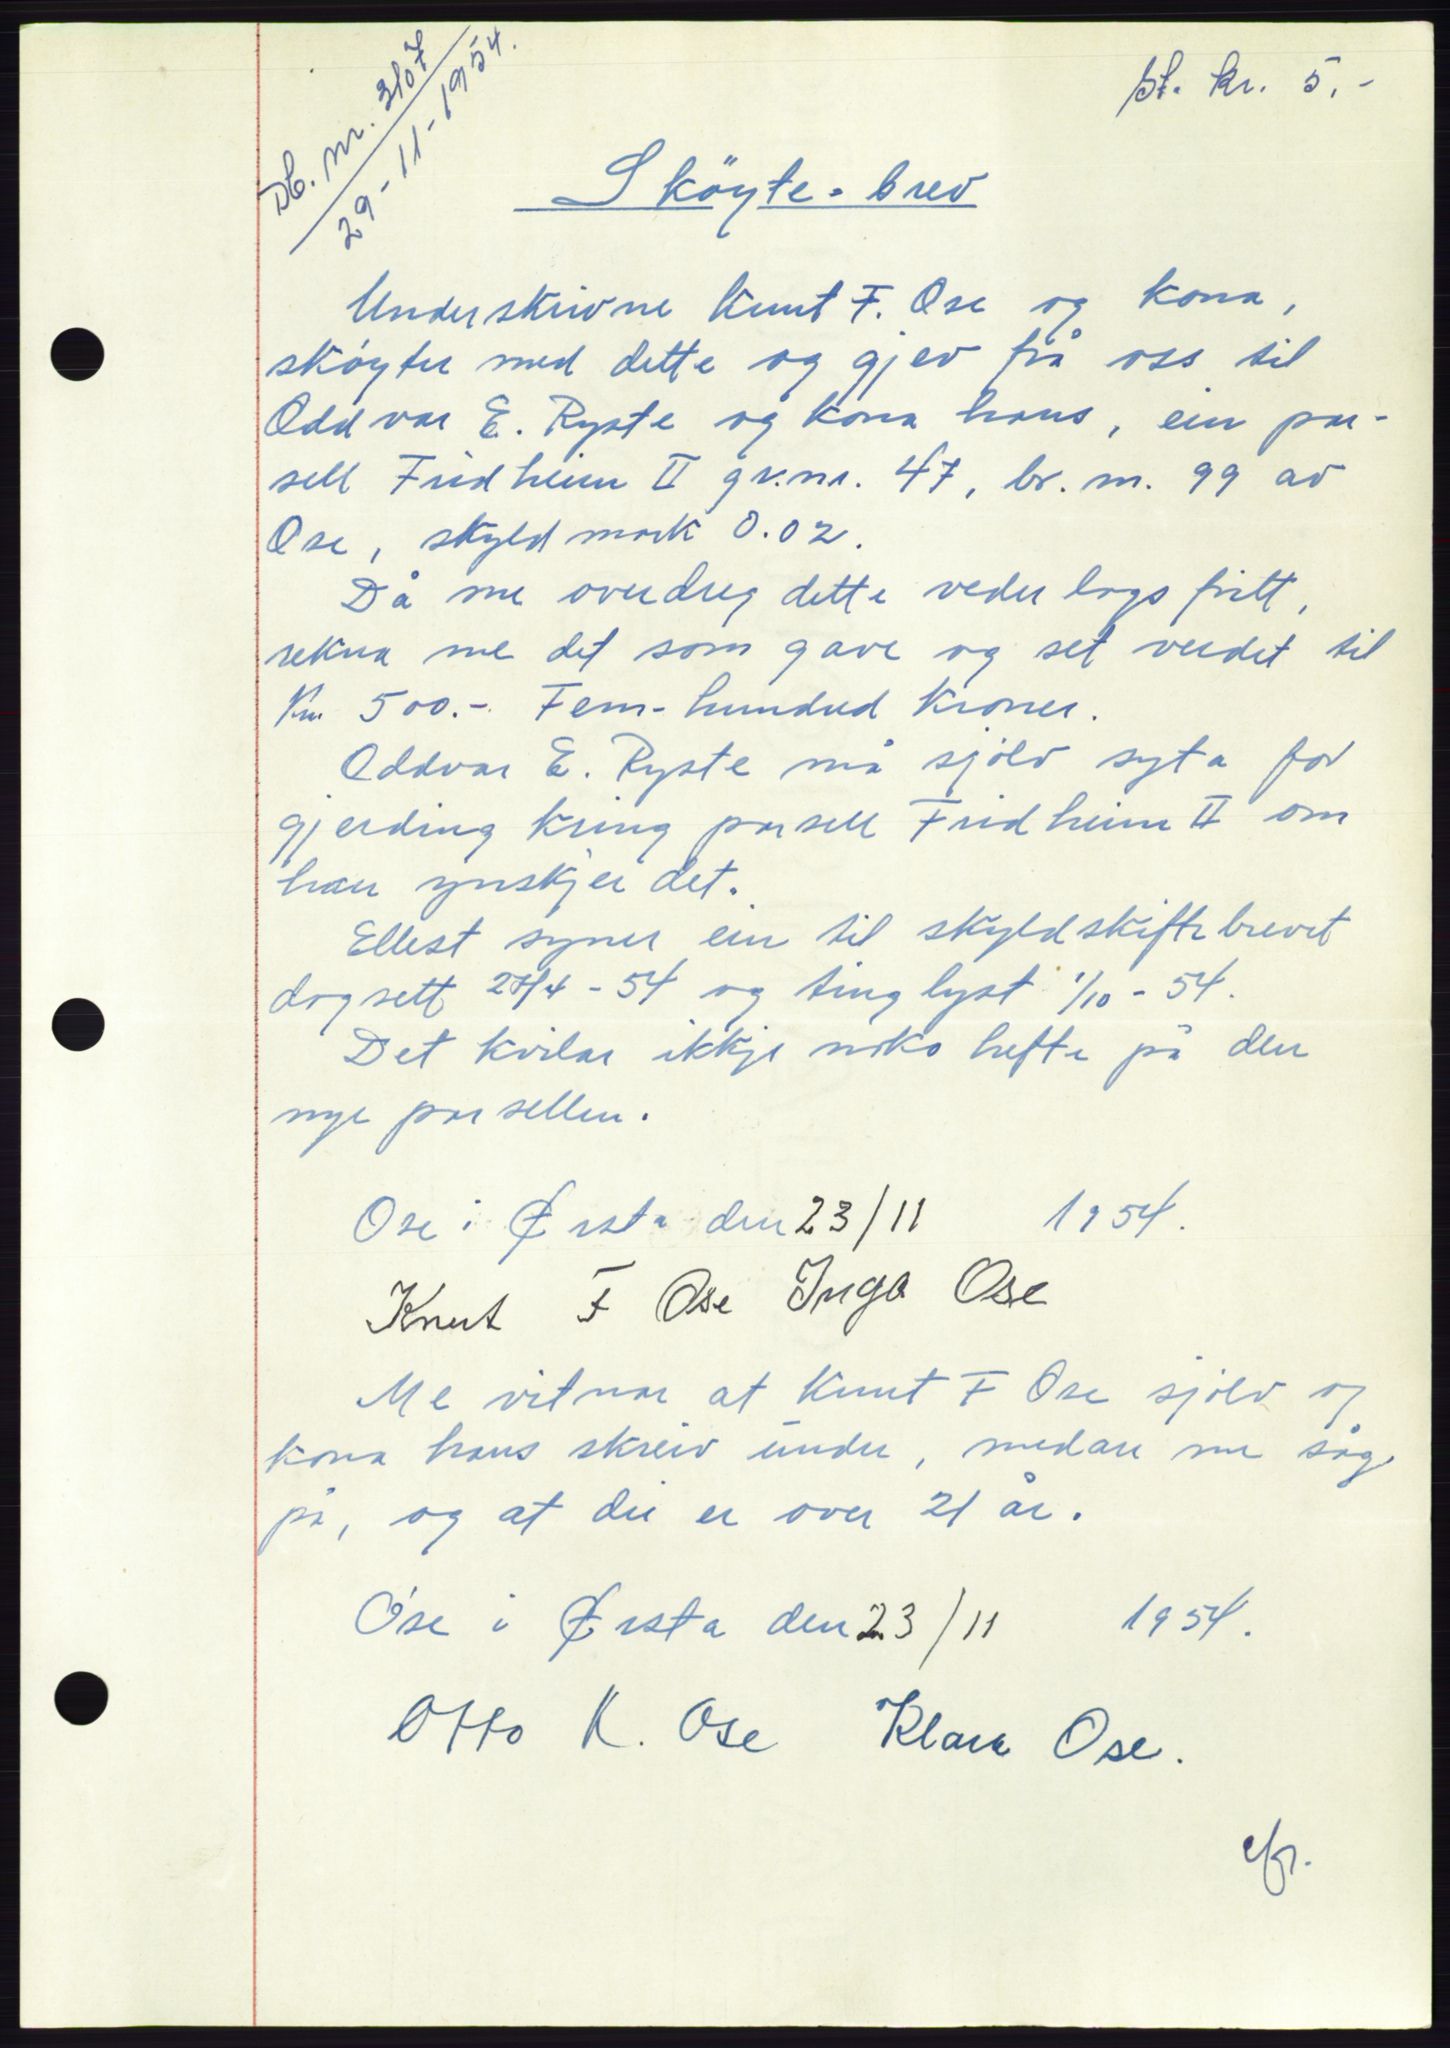 Db. nr. 3107
29-11-1954.
St. kr. 5,-
Sköyte-brev
Underskrivne Knut F. Ose og kona,
sköyter med dette og gjev frå oss til
Oddvar E. Ryste og kona hans, ein par-
sell Fridheim II gr.nr. 47, br. nr. 99 av
Ose, skyldmark 0.02.
Då me overdreg dette vederlagsfritt,
rekna me det som gave og set verdet til
Kr. 500.- Fem-hundred Kroner.
Oddvar E. Ryste må sjölv syta for
gjerding kring parsell Fridheim II om
han ynskjer det.
Ellest syner ein til skyldskiftebrevet
dagsett 27/4-54 og tinglyst 1/10-54.
Det kvilar ikkje noko hefte på den
nye parsellen.
Ose i Ørsta den 23/11 1954.
Knut F Ose Inga Ose
Me vitnar at Knut F Ose sjölv og
kona hans skreiv under, medan me såg
på, og at dei er over 21 år.
Ose i Ørsta den 23/11 1954.
Otto K. Ose Klara Ose.